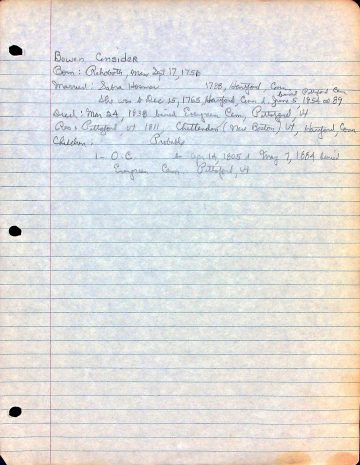 Bowen Consider
Born: Rehoboth, Mass Sept 17, 1756
Married: Sabra Hosmer 1788, Hartford, Conn
buried Pittsford Cem
She was b Dec 15, 1765 Hartford, Conn d. June 5, 1854 ae 89
Died: Mar 24, 1838 buried Evergreen Cem, Pittsford, Vt
Res: Pittsford Vt 1811, Chittenden (New Boston) Vt, Hartford, Conn
Children: Probable
1 - O.C. b Apr 14, 1805 d May 7, 1884 buried
Evergreen Cem. Pittsford, Vt